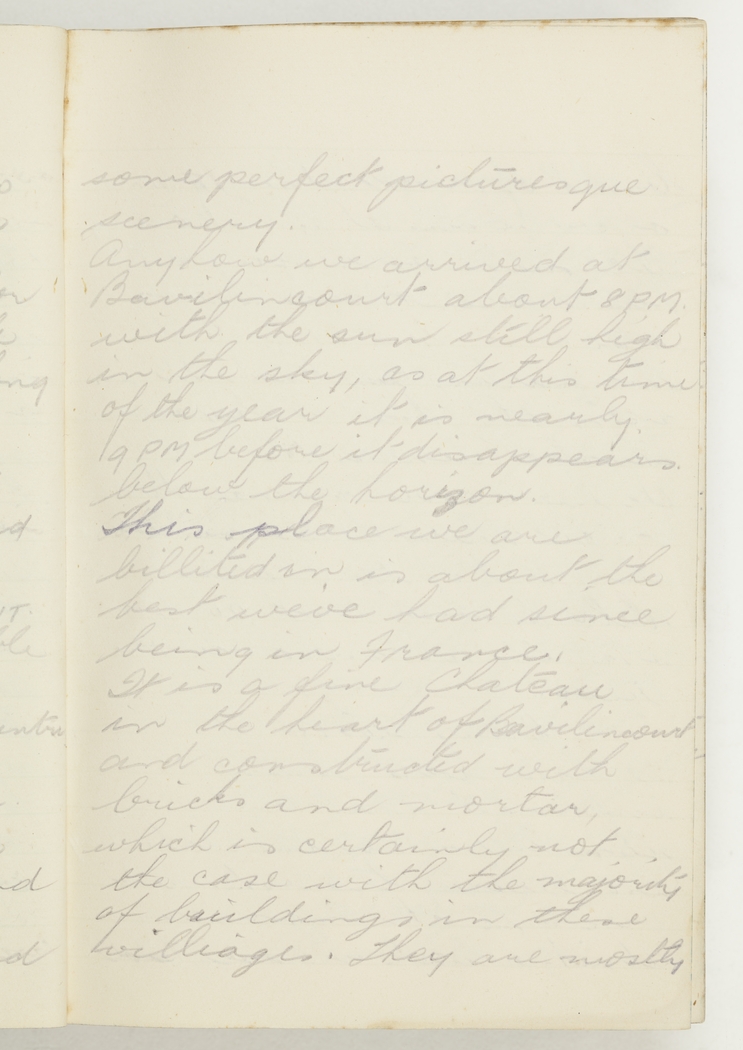 some perfect picturesque
scenery.
Anyhow we arrived at
Bavilincourt about 8 PM.
with the sun still high
in the sky, as at this time
of the year it is nearly
9 PM before it disappears
below the horizon.
This place we are
billited in is about the
best weive had since
being in France.
It is a fine Chateau
in the heart of Bavilincourt
and constructed with
bricks and mortar,
which is certainly not
the case with the majority
of buildings in these
villiages. They are mostly